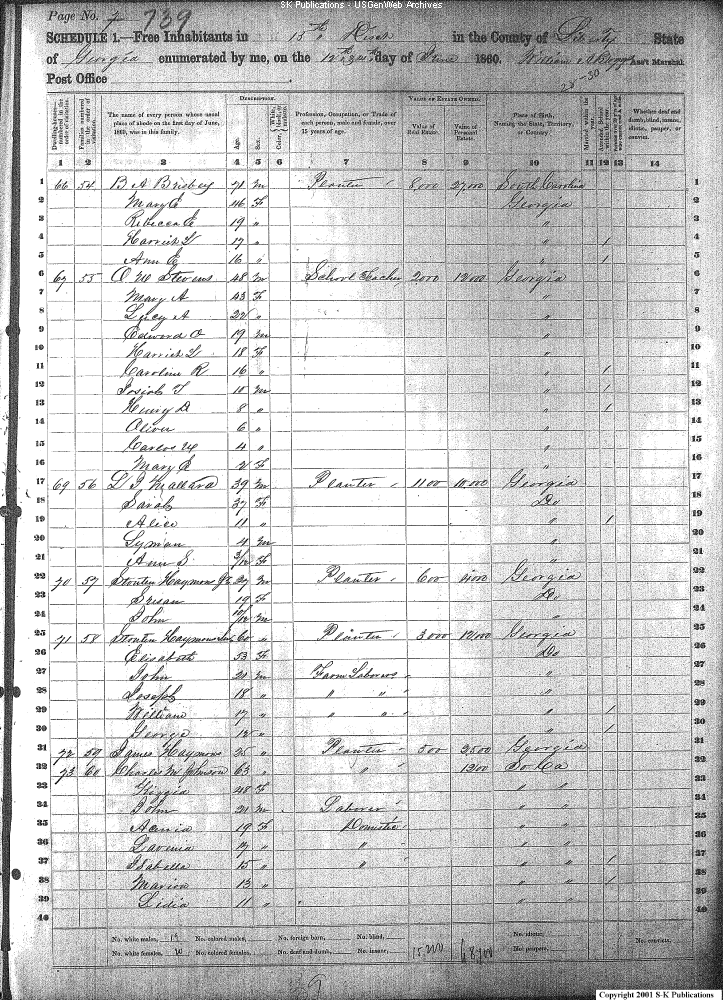 SK Publications - USGenWeb Archives
Page No. 7 739
SCHEDULE 1.—Free Inhabitants in 15th Dist in the County of Liberty State
of Georgia enumerated by me, on the 12th day of June 1860. William Ass't Marshal.
Post Office
28-30
DESCRIPTION. VALUE OF ESTATE OWNED.
Dwelling-houses—numbered in the order of visitation.
Families numbered in the order of visitation.
The name of every person whose usual place of abode on the first day of June, 1860, was in this family.
Age.
Sex.
Color,
Profession, Occupation, or Trade of each person, male and female, over 15 years of age.
Value of Real Estate.
Value of Personal Estate.
Place of Birth, Naming the State, Territory, or Country.
Married within the year.
Attended School within the year.
Whether deaf and dumb, blind, insane, idiotic, pauper, or convict.
1 2 3 4 5 6 7 8 9 10 11 12 13 14
1 66 54 B A Brisbey 71 m Planter 8,000 27,000 South Carolina 1
2 Mary E 46 F Georgia 2
3 Rebecca E 19 " " 3
4 Harriet 17 " " / 4
5 Ann E 16 " " / 5
6 67 55 O W Stevens 48 m School Teacher 2000 12000 Georgia 6
7 Mary A 43 F " 7
8 Lucy A 22 " " 8
9 Edward O 19 m " 9
10 Harriet 18 F " 10
11 Caroline R 16 " " / 11
12 Josiah T 10 m " / 12
13 Henry D 8 " " / 13
14 Oliver 6 " " 14
15 Carlos 4 " " 15
16 Mary E 2 F " 16
17 69 56 L J Mallard 39 m Planter 1100 10,000 Georgia 17
18 Sarah 37 F Do 18
19 Alice 11 " " / 19
20 Lyman 4 m " 20
21 Ann S 3/12 F " 21
22 70 57 Stouten Haymons Jr 27 m Planter 600 4000 Georgia 22
23 Susan 19 F Do 23
24 John 10/12 m " 24
25 71 58 Stouten Haymons Sen 60 " Planter 3000 12,000 Georgia 25
26 Elisabeth 53 F Do 26
27 John 21 m Farm Laborer " 27
28 Joseph 18 " " " " 28
29 William 17 " " " " / 29
30 George 12 " " / 30
31 72 59 James Haymons 25 " Planter 500 2500 Georgia 31
32 73 60 Charles M Johnson 63 " " 1200 So Ca 32
33 48 F " " 33
34 John 21 m Laborer " " 34
35 19 F Domestic " " 35
36 Lavenia 17 " " " " 36
37 Isabella 15 " " " " / 37
38 Marion 13 " " " / 38
39 Lidia 11 " 39
40 40
No. white males, 19 No. colored males, No. foreign born, No. blind, 15,200 68,700 No. idiotic, No. convicts,
No. white females, 20 No. colored females, No. deaf and dumb, No. insane, No. paupers,
39
Copyright 2001 S-K Publications